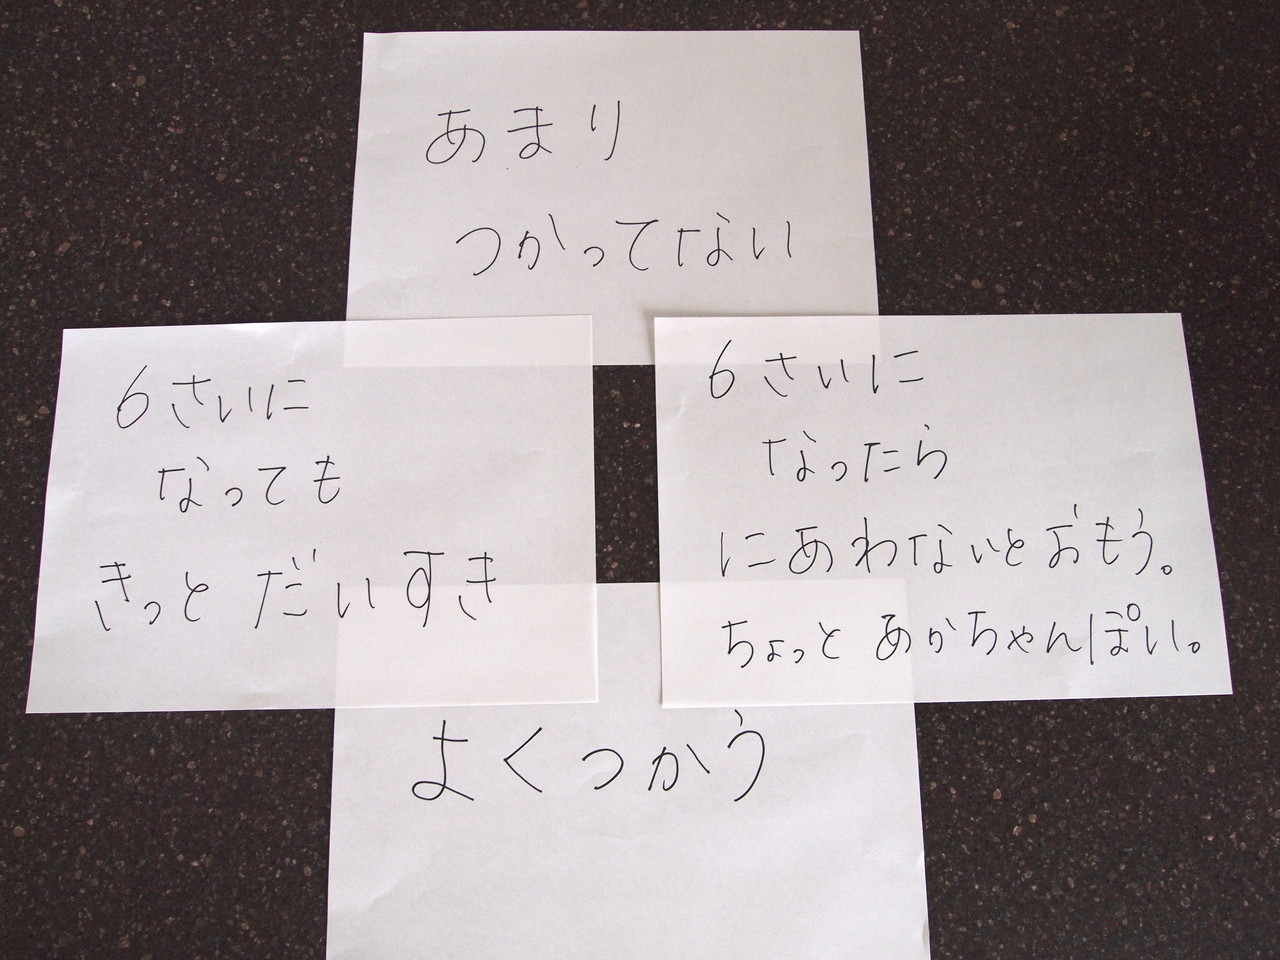 あまり
つかってない
6さいに
なっても
きっと だいすき
6さいに
なったら
にあわないと おもう。
ちょっと あかちゃんぽい。
よくつかう